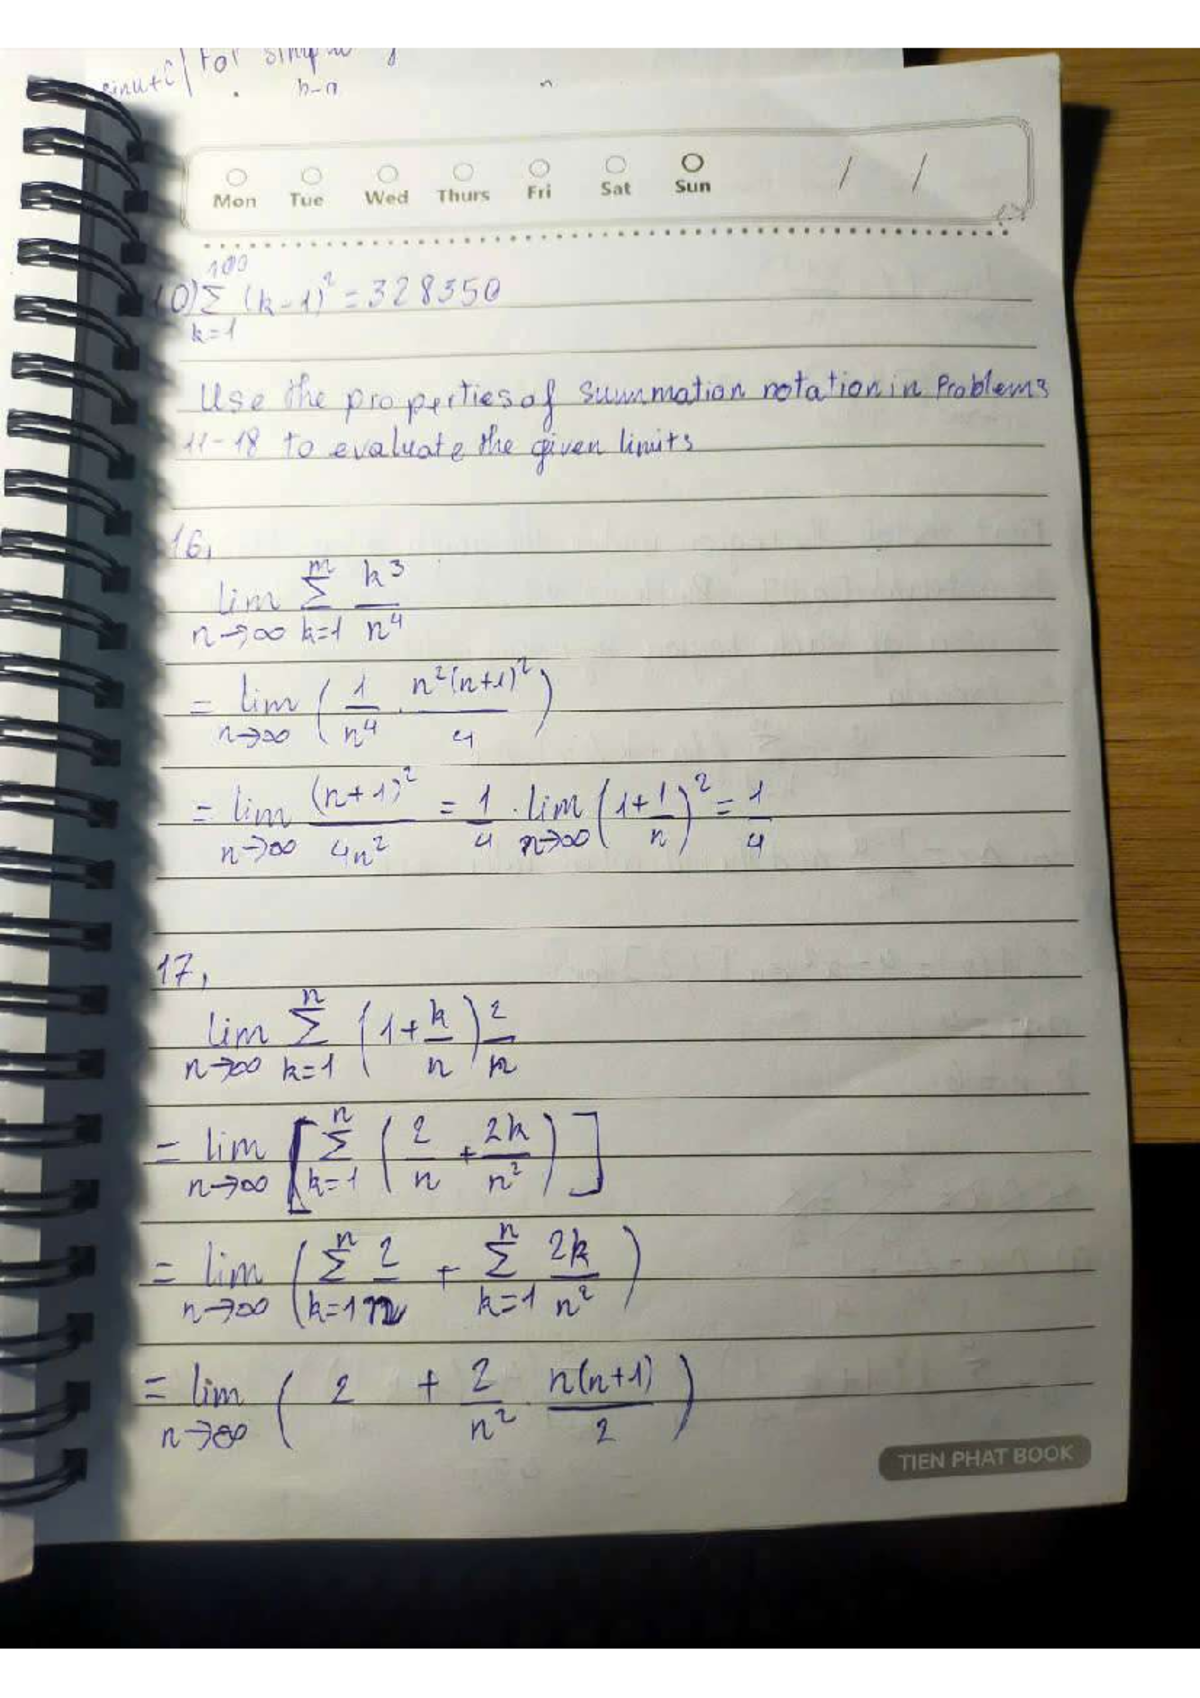 sinu+C | For simple
b-a
n
Mon Tue Wed Thurs Fri Sat Sun / /
10) \sum_{k=1}^{100} (k-1)^2 = 328350
Use the properties of summation notation in Problems
11-18 to evaluate the given limits
16,
\lim_{n→∞} \sum_{k=1}^{n} \frac{k^3}{n^4}
= \lim_{n→∞} ( \frac{1}{n^4} . \frac{n^2(n+1)^2}{4} )
= \lim_{n→∞} \frac{(n+1)^2}{4n^2} = \frac{1}{4} . \lim_{n→∞} (1+\frac{1}{n})^2 = \frac{1}{4}
17,
\lim_{n→∞} \sum_{k=1}^{n} (1+\frac{k}{n}) \frac{2}{n}
= \lim_{n→∞} [ \sum_{k=1}^{n} ( \frac{2}{n} + \frac{2k}{n^2} ) ]
= \lim_{n→∞} ( \sum_{k=1}^{n} \frac{2}{n} + \sum_{k=1}^{n} \frac{2k}{n^2} )
= \lim_{n→∞} ( 2 + \frac{2}{n^2} . \frac{n(n+1)}{2} )
TIEN PHAT BOOK